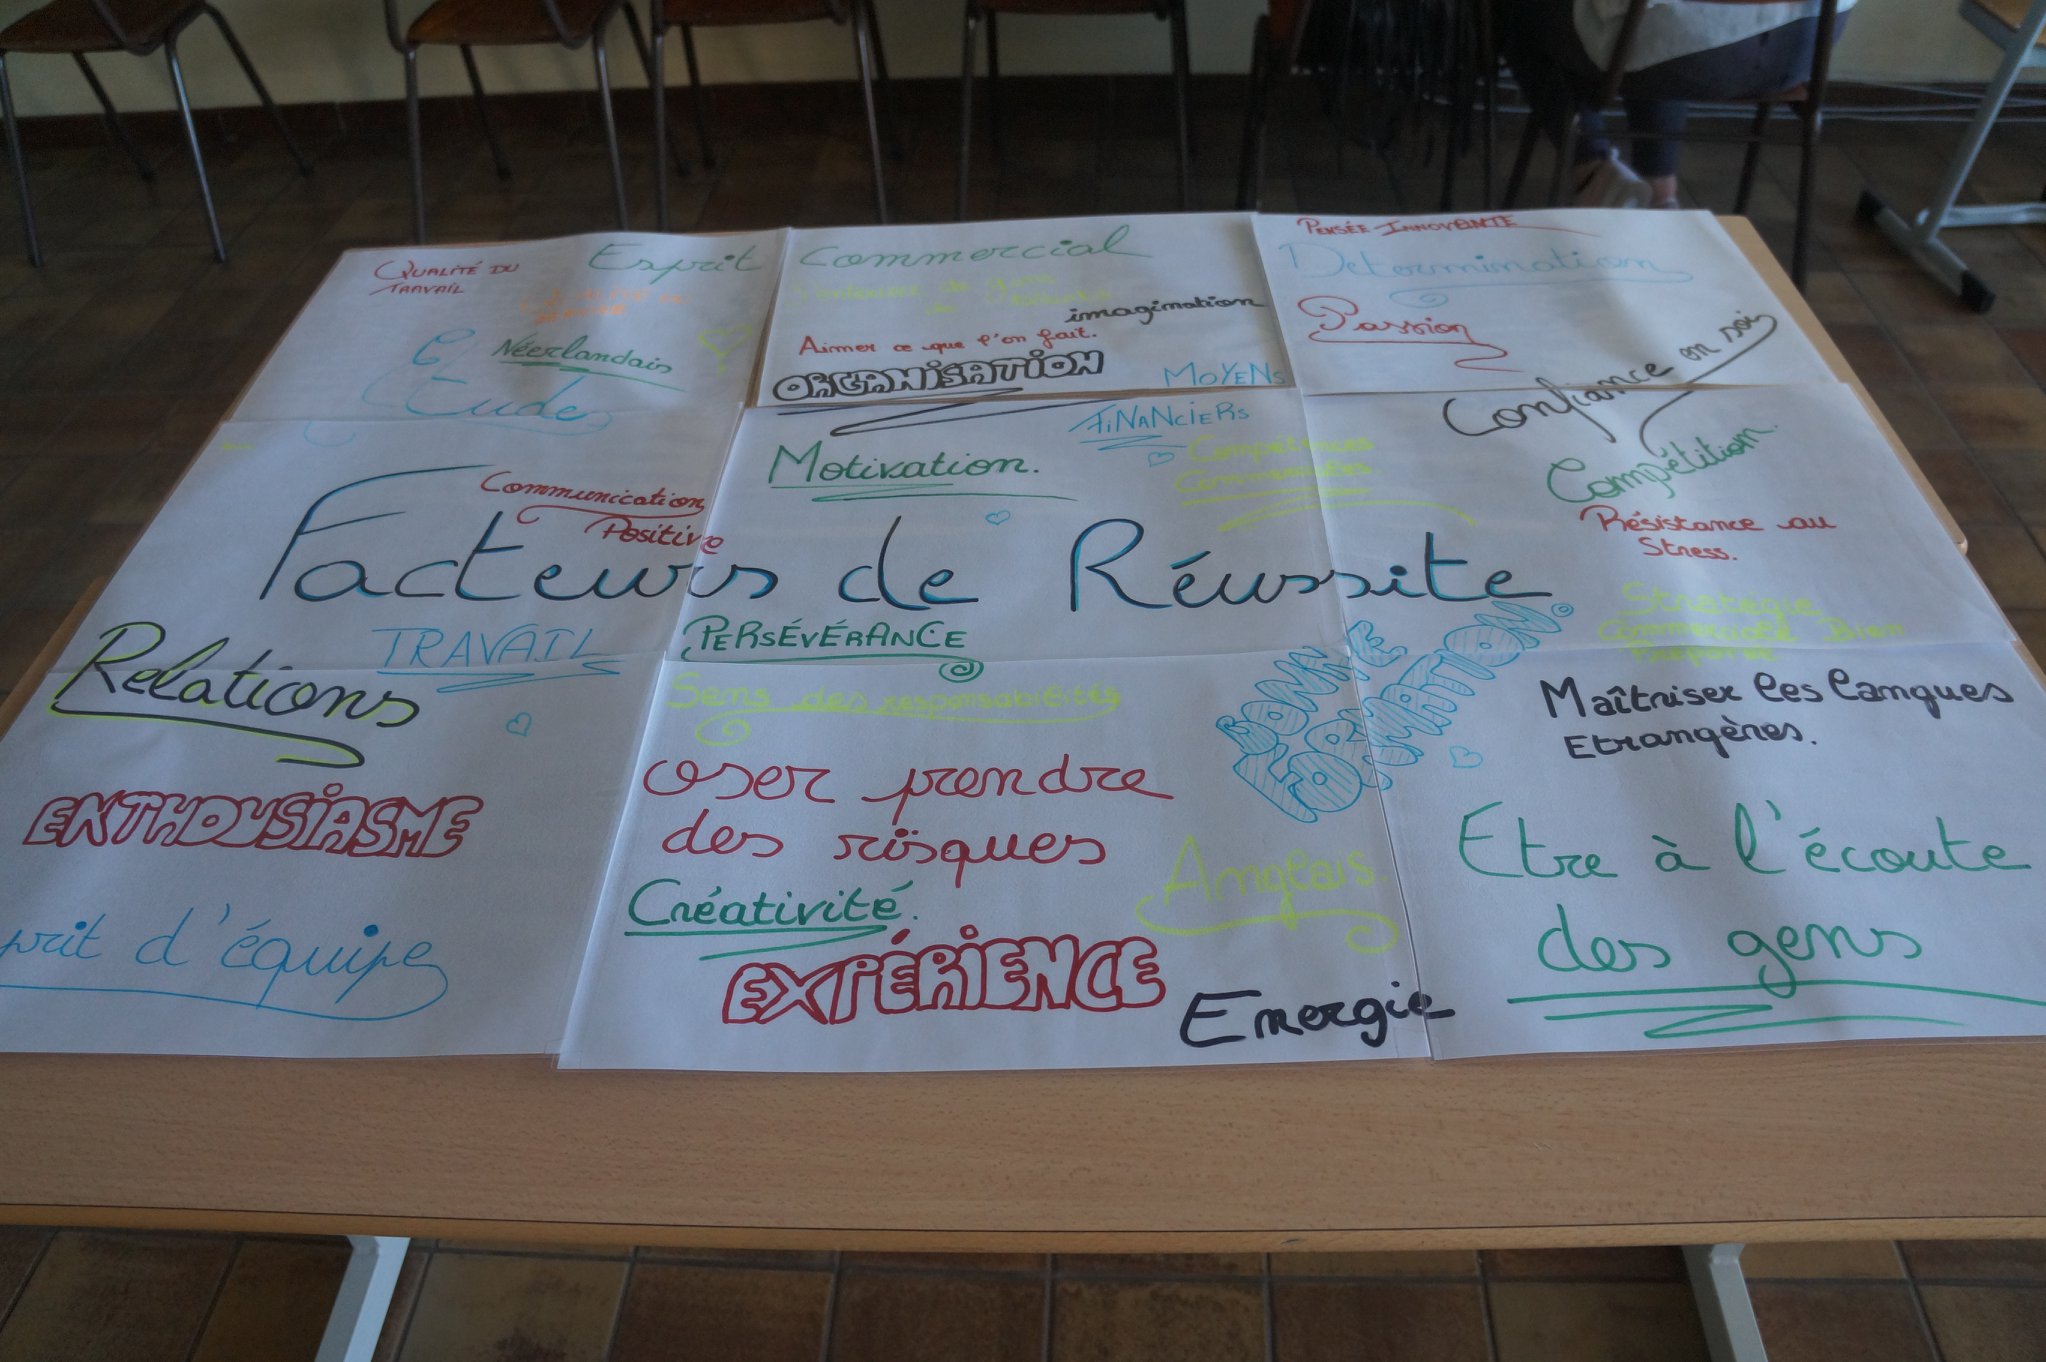 QUALITÉ DU
TRAVAIL
Esprit Commercial
PENSÉE INNOVANTE
Determination
imagination
Passion
Aimer ce que l'on fait.
Néerlandais
ORGANISATION
MOYENS
FINANCIERS
Confiance en soi
Etude
Motivation.
Compétences
Commerciales
Compétition.
Communication
Positive
Résistance au
Stress.
Facteurs de Réussite
Stratégie
Commerciale Bien
TRAVAIL
PERSÉVÉRANCE
BONNE
FORMATION.
Relations
Sens des responsabilités
Maîtriser les langues
Etrangères.
ENTHOUSIASME
oser prendre
des risques
Anglais.
Etre à l'écoute
des gens
Créativité.
prit d'équipe
EXPÉRIENCE
Energie